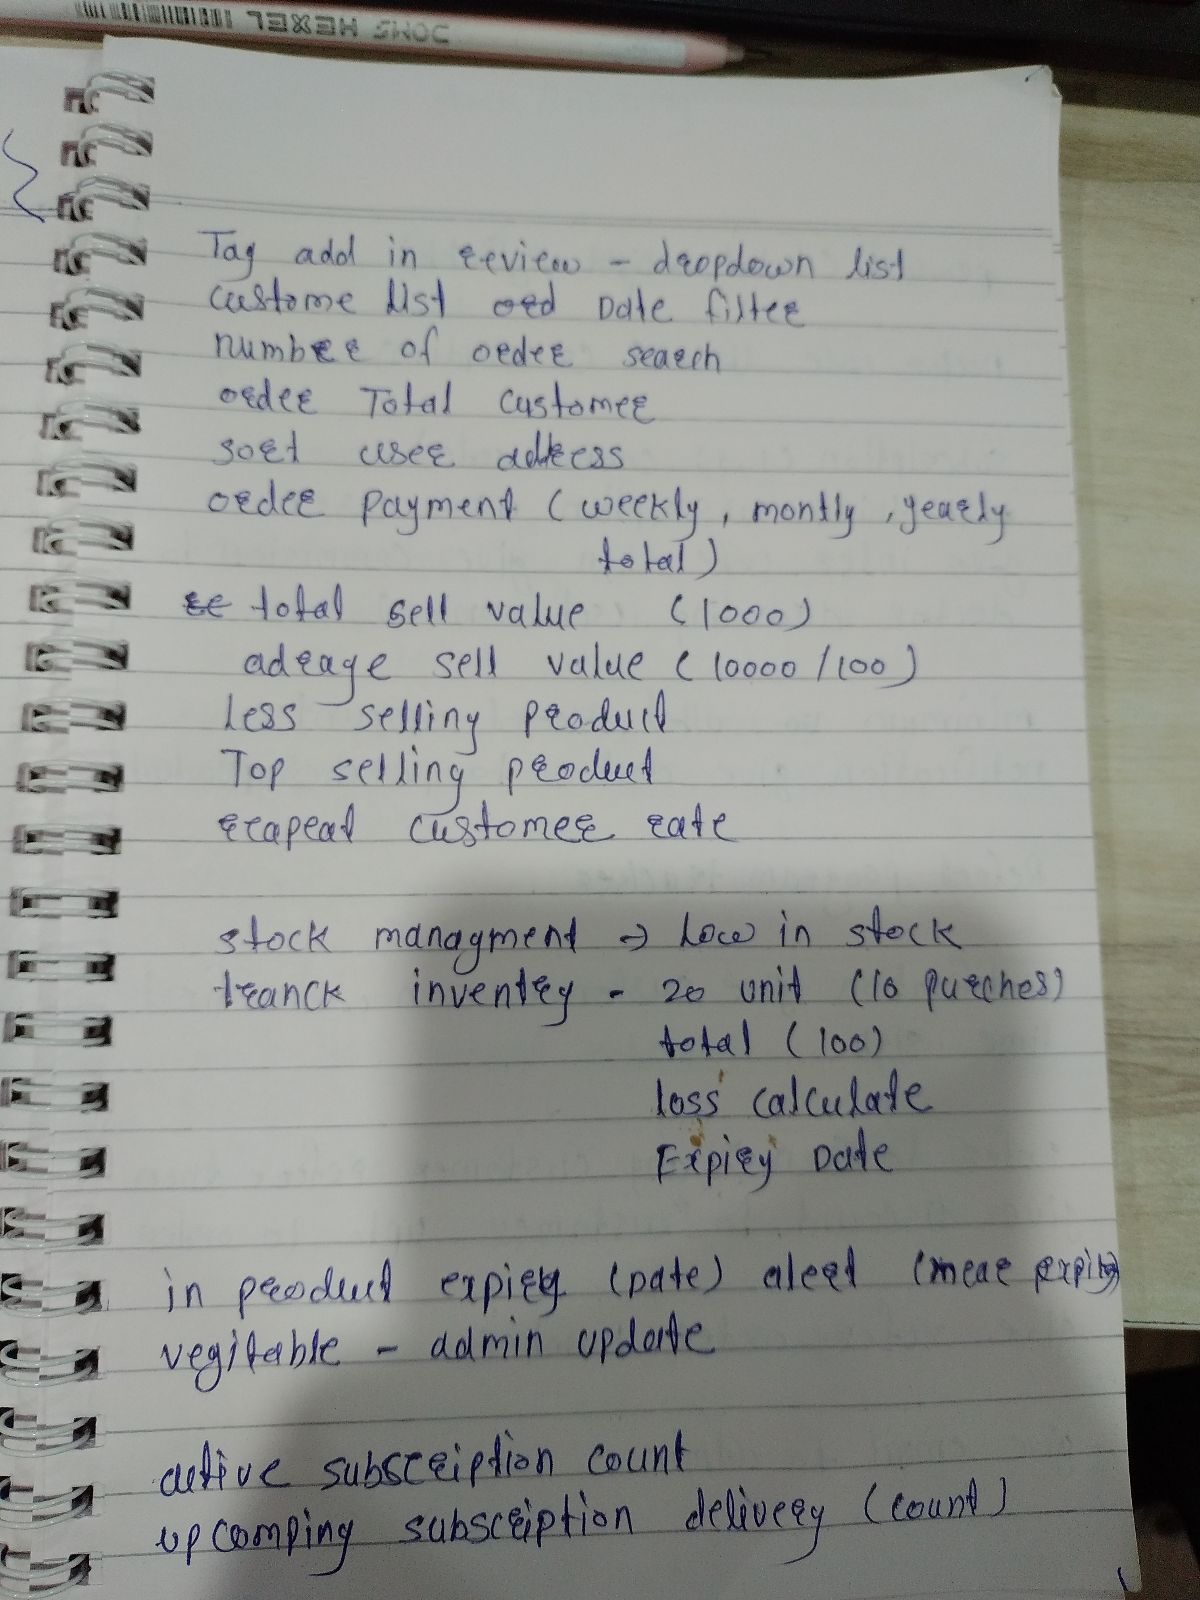 DOMS HEXEL
Tag add in review - dropdown list
custome list ord Date filter
number of order search
order Total customer
sort user address
order payment (weekly, montly, yearly
total)
total sell value (1000)
adrage sell value (10000/100)
Less selling product
Top selling product
reapeat customer rate
stock managment → Low in stock
tranck inventry - 20 unit (10 purches)
total (100)
loss calculate
Expiry Date
in product expiry (Date) alert (near expiry)
vegitable - admin update
active subscription count
upcomping subscription delivery (count)